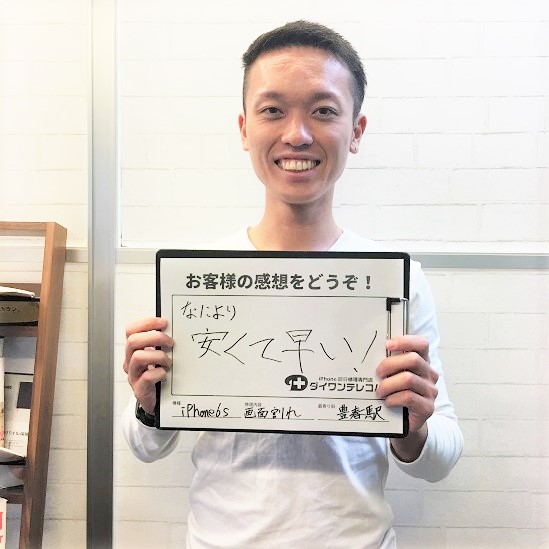 お客様の感想をどうぞ！
なにより
安くて早い！
iPhone即日修理専門店
ダイワンテレコム
機種 iPhone6s 修理内容 画面割れ 最寄り駅 豊春駅